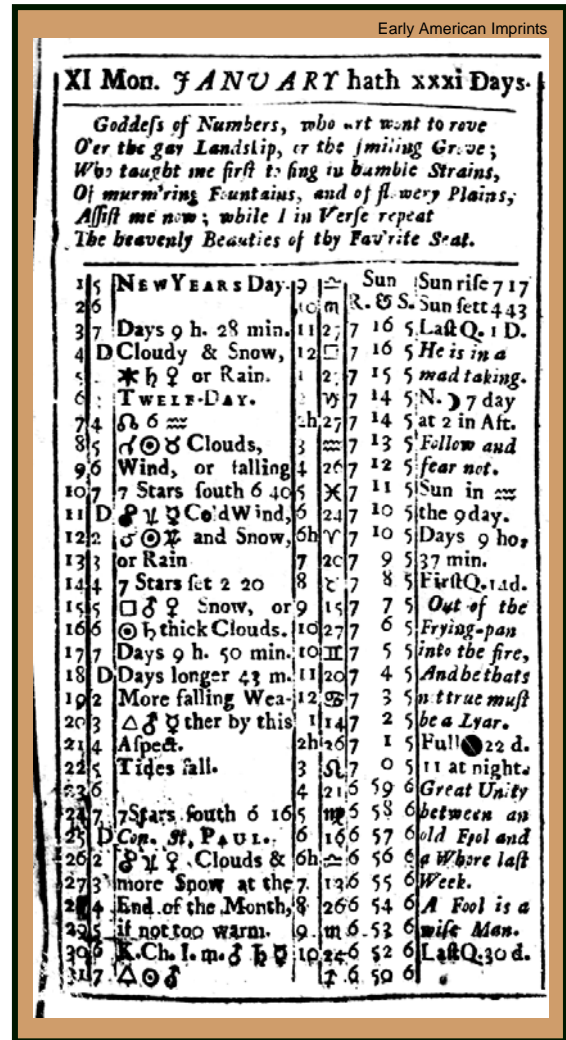 Early American Imprints
XI Mon. JANUARY hath xxxi Days.
Goddeſs of Numbers, who art wont to rove
O'er the gay Landskip, or the ſmiling Grove;
Who taught me firſt to ſing in humble Strains,
Of murm'ring Fountains, and of flowery Plains,
Aſſiſt me now; while I in Verſe repeat
The heavenly Beauties of thy Fav'rite Seat.
1 5 NEW YEARS Day. 9 ♎ Sun Sun riſe 7 17
2 6 10 ♏ R. & S. Sun ſett 4 43
3 7 Days 9 h. 28 min. 11 27 7 16 5 Laſt Q. 1 D.
4 D Cloudy & Snow, 12 7 16 5 He is in a
5 ✶ ♄ ♀ or Rain. 1 7 15 5 mad taking.
6 TWELF-DAY. ♑ 7 14 5 N. ☽ 7 day
7 4 ☊ 6 ♒ 2h 27 7 14 5 at 2 in Aft.
8 5 ☌ ☉ ☿ Clouds, 3 ♒ 7 13 5 Follow and
9 6 Wind, or falling 4 26 7 12 5 fear not.
10 7 7 Stars ſouth 6 40 5 ♓ 7 11 5 Sun in ♒
11 D ♃ ☿ Cold Wind, 6 24 7 10 5 the 9 day.
12 2 ☉ and Snow, 6h ♈ 7 10 5 Days 9 ho,
13 3 or Rain 7 20 7 9 5 37 min.
14 4 7 Stars ſet 2 20 8 ♉ 7 8 5 Firſt Q. 14d.
15 5 □ ♂ ♀ Snow, or 9 15 7 7 5 Out of the
16 6 ☉ ♄ thick Clouds. 10 27 7 6 5 Frying-pan
17 7 Days 9 h. 50 min. 10 ♊ 7 5 5 into the fire,
18 D Days longer 43 m. 11 20 7 4 5 And he thats
19 2 More falling Wea- 12 ♋ 7 3 5 not true muſt
20 3 △ ♂ ☿ ther by this 1 14 7 2 5 be a Lyar.
21 4 Aſpect. 2h 26 7 1 5 Full 22 d.
22 5 Tides fall. 3 ♌ 7 0 5 11 at night.
23 6 4 21 6 59 6 Great Unity
24 7 7 Stars ſouth 6 16 5 ♍ 6 58 6 between an
25 D Con. St, PAUL. 6 16 6 57 6 old Fool and
26 2 ♃ ♀ Clouds & 6h ♎ 6 56 6 a Whore laſt
27 3 more Snow at the 7 12 6 55 6 Week.
28 4 End of the Month, 8 26 6 54 6 A Fool is a
29 5 if not too warm. 9 ♏ 6 53 6 wiſe Man.
30 6 K. Ch. I. m. ♂ ♄ ☿ 10 24 6 52 6 Laſt Q. 30 d.
31 7 △ ☉ ♂ ♐ 6 50 6